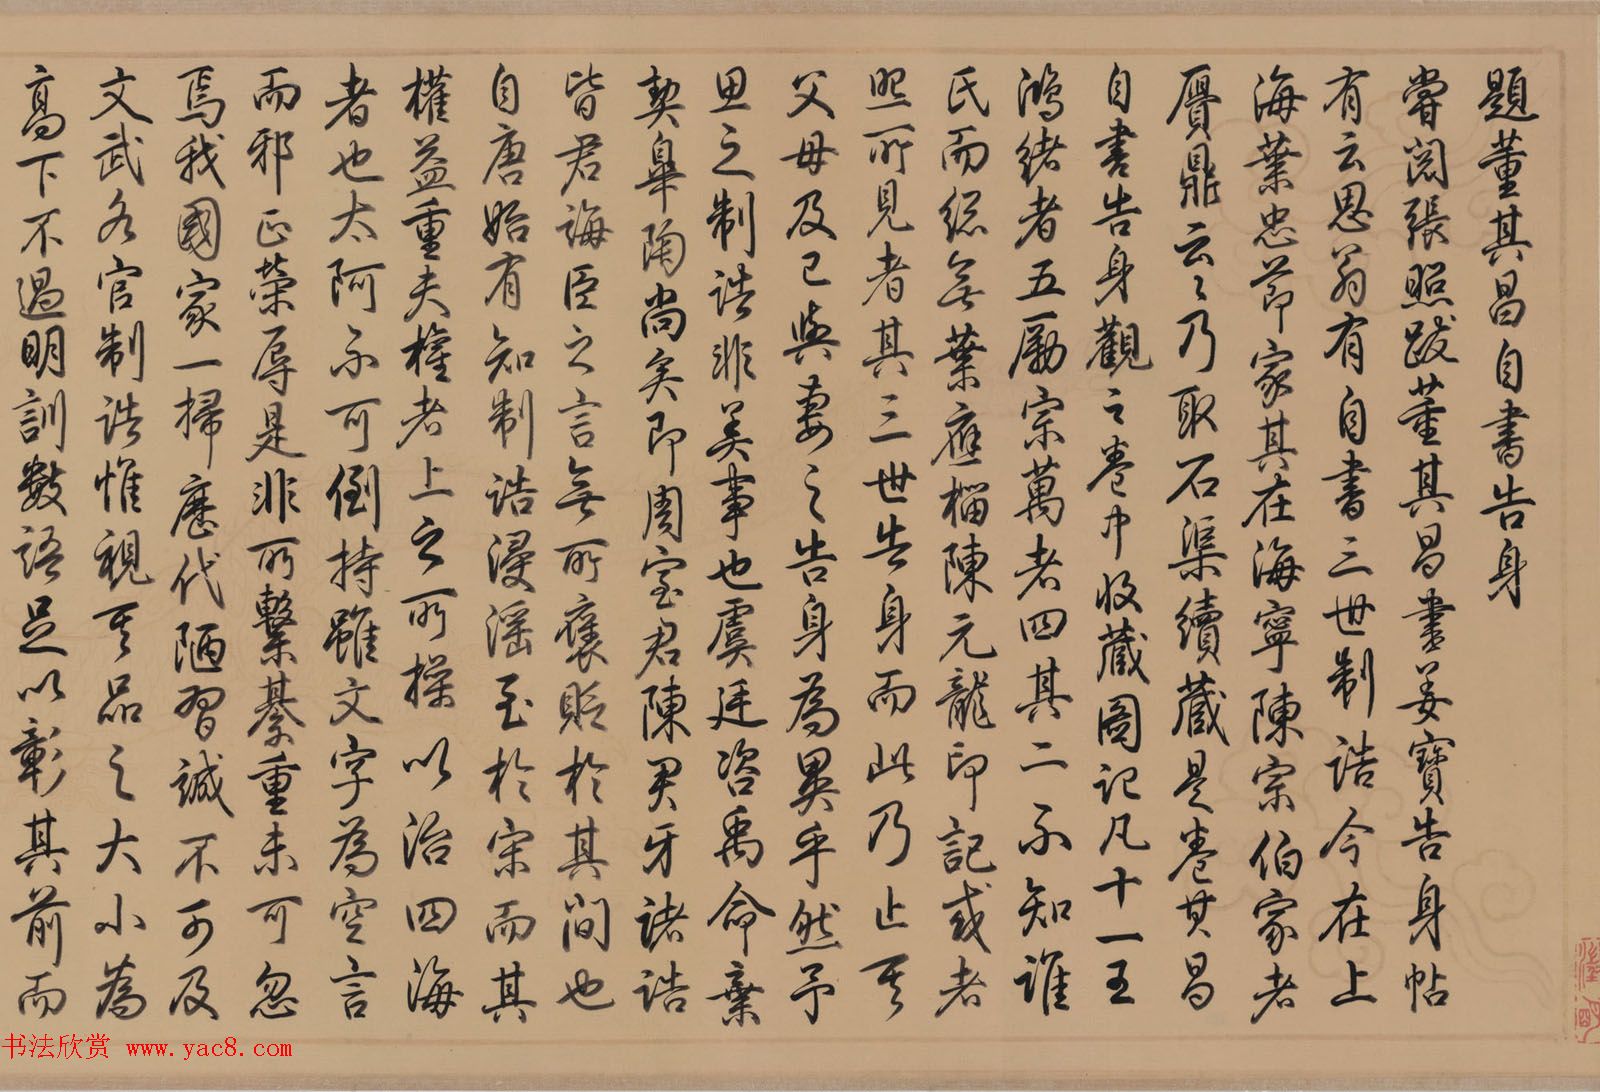 題董其昌自書告身
嘗閱張照跋董其昌書姜寶告身帖
有云思翁有自書三世制誥今在上
海葉忠節家其在海寧陳宗伯家者
贋鼎云云乃取石渠續藏是卷其昌
自書告身觀之卷中收藏圖記凡十一王
鴻緒者五勵宗萬者四其二不知誰
氏而總無葉應榴陳元龍印記或者
照所見者其三世告身而此乃止其
父母及已與妻之告身為異乎然予
思之制誥非美事也虞廷咨禹命棄
契皐陶尚矣即周室君陳君牙諸誥
皆君誨臣之言無所褒貶於其間也
自唐始有知制誥浸滛至於宋而其
權益重夫權者上之所操以治四海
者也太阿不可倒持雖文字為空言
而邪正榮辱是非所繫綦重未可忽
焉我國家一掃歷代陋習誠不可及
文武各官制誥惟視其品之大小為
高下不過明訓數語足以彰其前而
书法欣赏 www.yac8.com